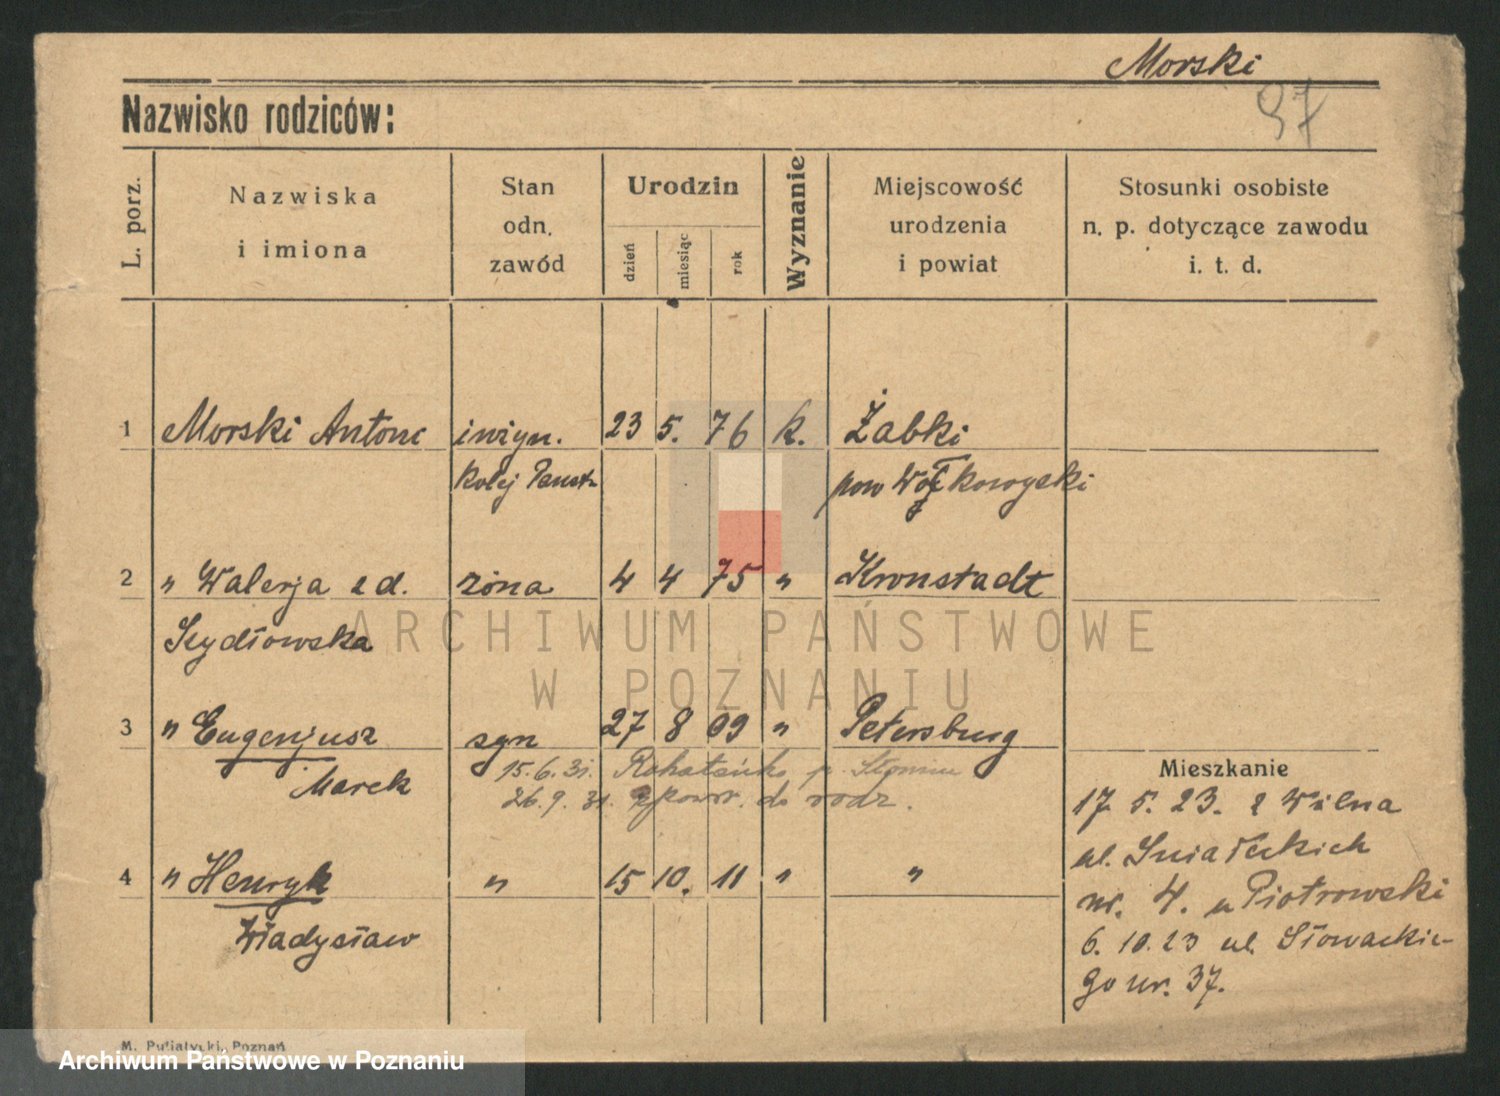 Morski
97
Nazwisko rodziców:
L. porz.
Nazwiska
i imiona
Stan
odn.
zawód
Urodzin
dzień
miesiąc
rok
Wyznanie
Miejscowość
urodzenia
i powiat
Stosunki osobiste
n. p. dotyczące zawodu
i. t. d.
1 Morski Antoni inżyn. 23 5. 76 k. Żabki
kolej Państ. pow Wołkowyski
2 " Walerja z d. żona 4 4 75 " Kronstadt
Szydłowska
3 " Eugenjusz syn 27 8 09 " Petersburg
Marek
15.6.31. p. Słonim
26.9.31. powr. do rodz.
4 " Henryk " 15 10. 11 " "
Władysław
Mieszkanie
17. 5. 23. z Wilna
ul. Śniadeckich
nr. 4. u Piotrowski
6. 10. 23 ul. Słowackie-
go nr. 37.
M. Putiatycki, Poznań
ARCHIWUM PAŃSTWOWE
W POZNANIU
Archiwum Państwowe w Poznaniu